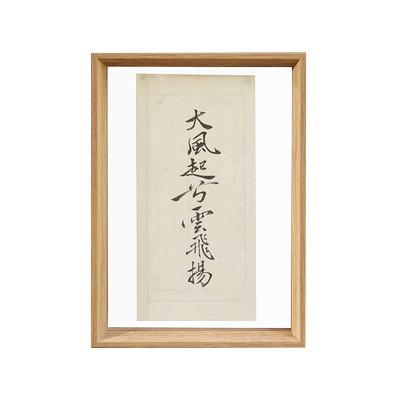 大風起兮雲飛揚